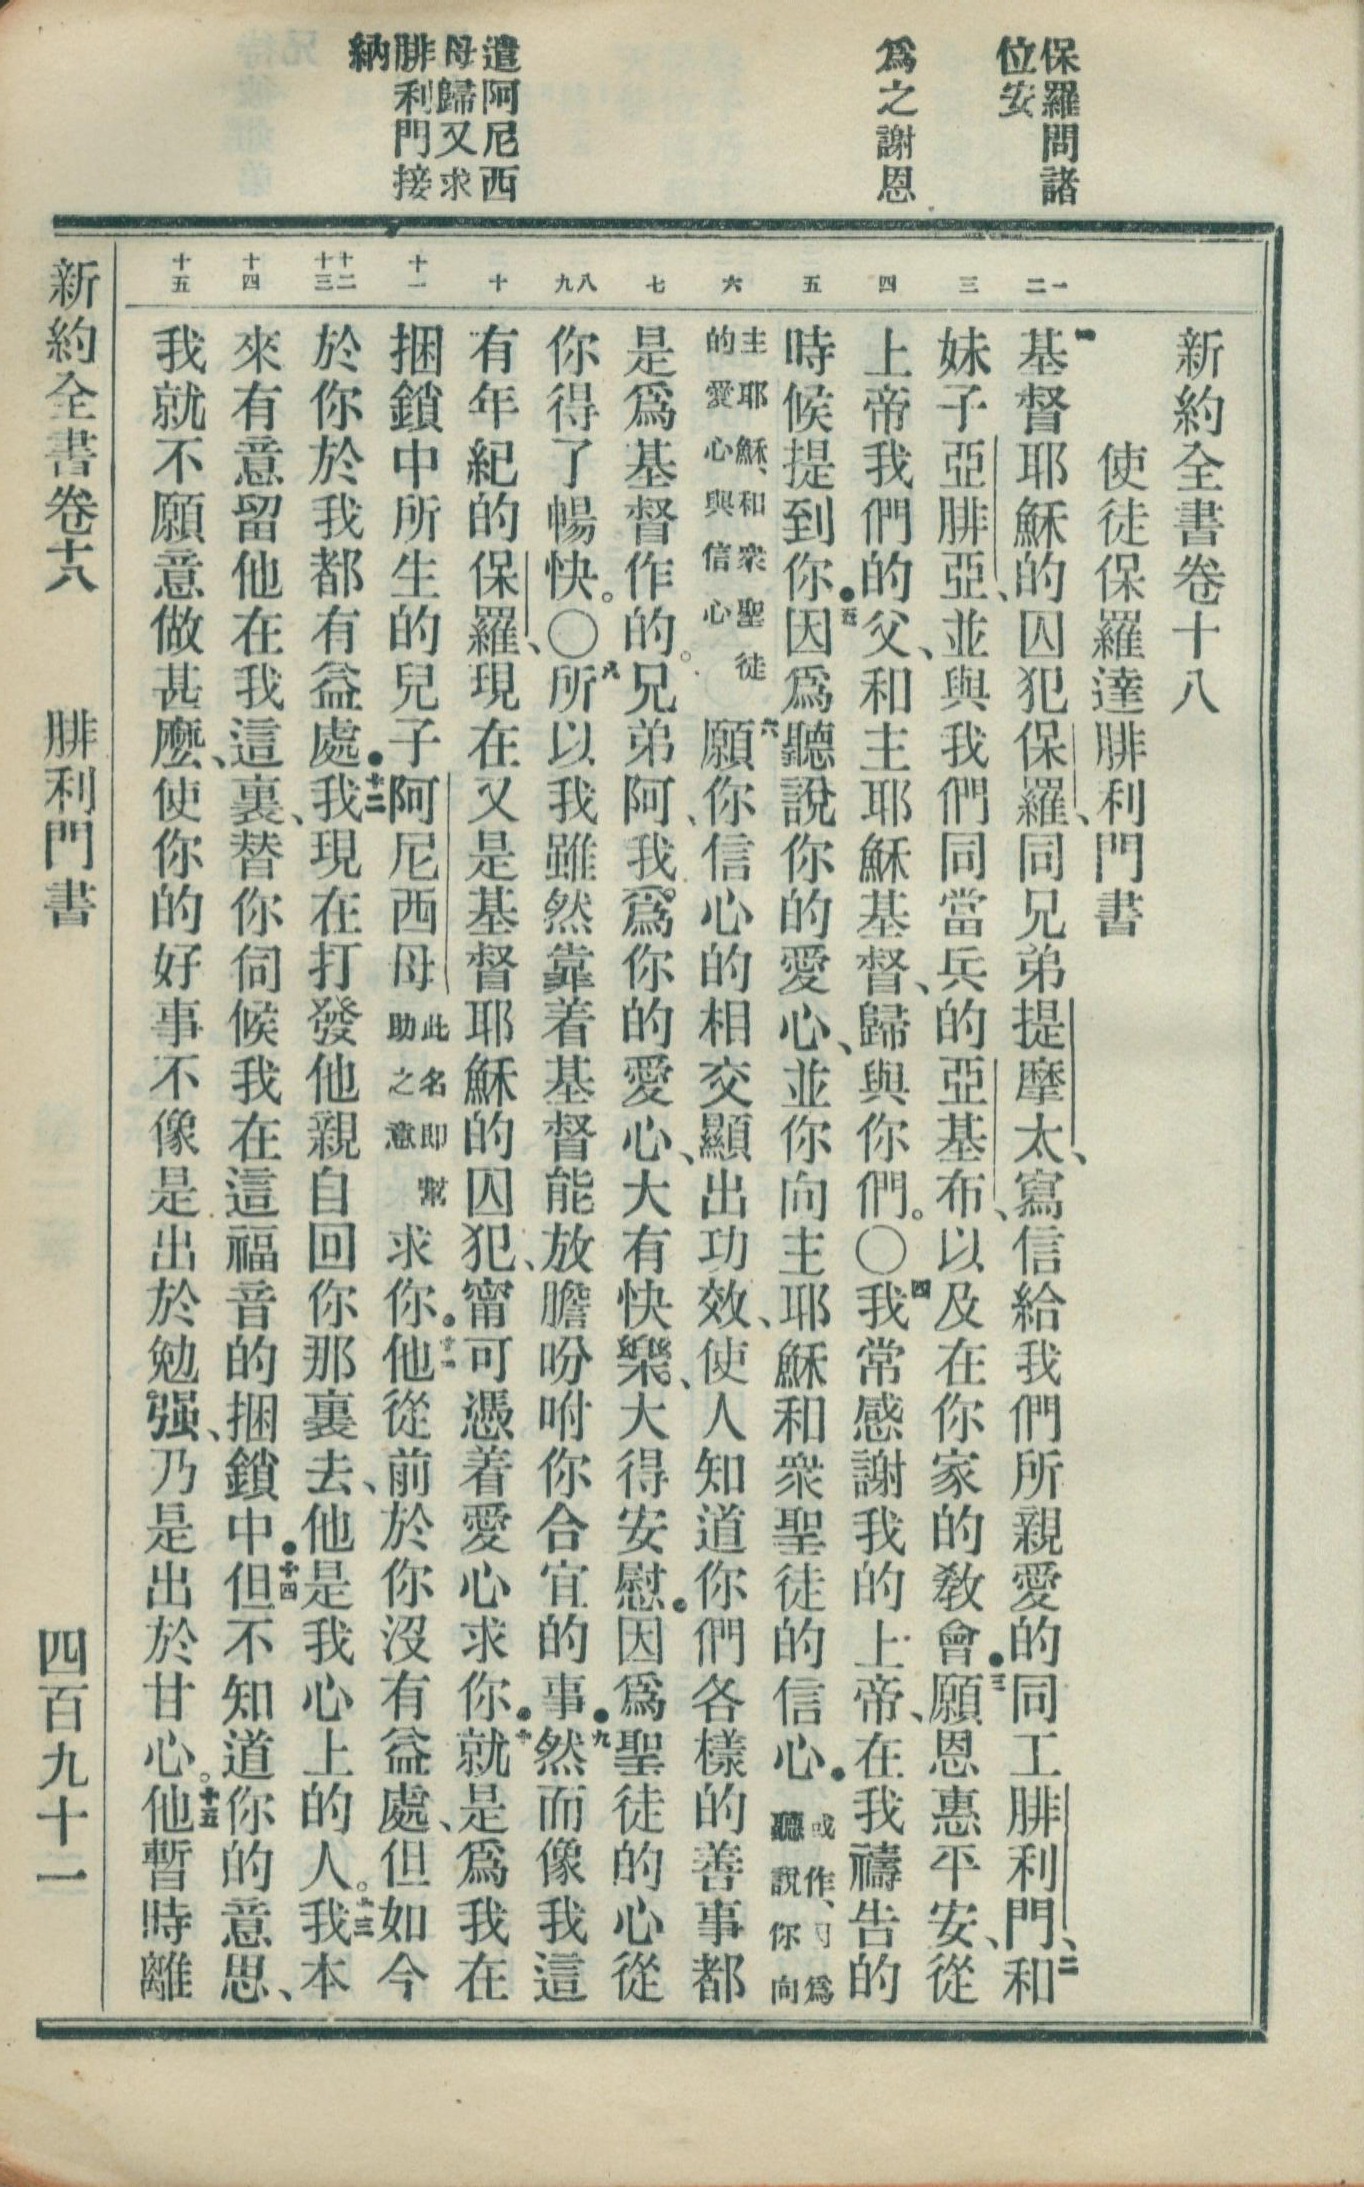 保羅問諸
位安
爲之謝恩
遣阿尼西
母歸又求
腓利門接
納
一二
三
四
五
六
七
八九
十
十一
十二十三
十四
十五
新約全書卷十八
使徒保羅達腓利門書
一基督耶穌的囚犯保羅、同兄弟提摩太、寫信給我們所親愛的同工腓利門、二和
妹子亞腓亞、並與我們同當兵的亞基布、以及在你家的敎會●三願恩惠平安、從
上帝我們的父、和主耶穌基督、歸與你們。〇四我常感謝我的上帝、在我禱告的
時候提到你●五因爲聽說你的愛心、並你向主耶穌和衆聖徒的信心●或作、因爲聽說你向
主耶穌、和衆聖徒的愛心與信心 六願你信心的相交顯出功效、使人知道你們各樣的善事都
是爲基督作的。七兄弟阿、我爲你的愛心、大有快樂、大得安慰●因爲聖徒的心從
你得了暢快。〇八所以我雖然靠着基督能放膽吩咐你合宜的事●九然而像我這
有年紀的保羅、現在又是基督耶穌的囚犯、甯可憑着愛心求你●十就是爲我在
捆鎖中所生的兒子阿尼西母此名即幫助之意求你●十一他從前於你沒有益處、但如今
於你於我都有益處●十二我現在打發他親自回你那裏去、他是我心上的人。十三我本
來有意留他在我這裏、替你伺候我在這福音的捆鎖中●十四但不知道你的意思、
我就不願意做甚麼、使你的好事不像是出於勉强、乃是出於甘心。十五他暫時離
新約全書卷十八 腓利門書 四百九十一